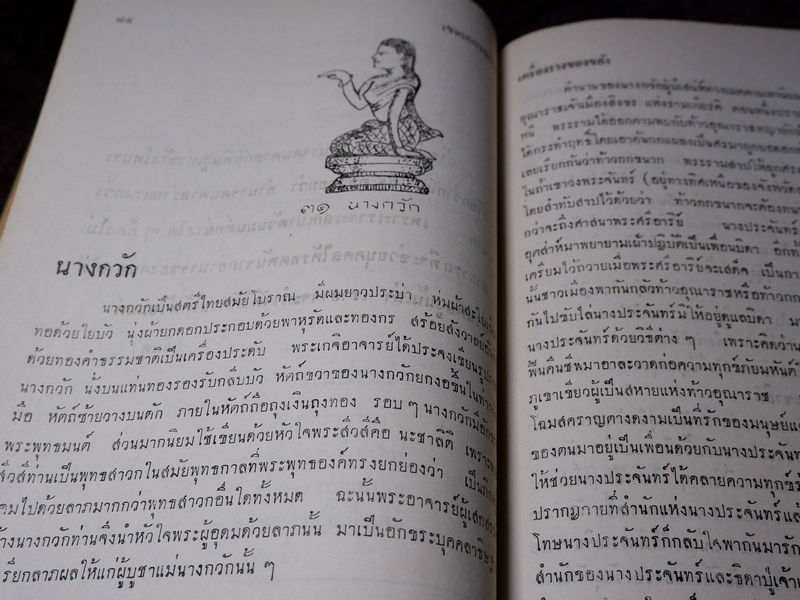 ๓๑ นางกวัก
นางกวัก
นางกวักเป็นสตรีไทยสมัยโบราณ มีผมยาวประบ่า ห่มผ้าสะไบเฉียง
ทอด้วยใยบัว นุ่งผ้ายกดอกประกอบด้วยพาหุรัดและทองกร สร้อยสังวาลย์
ด้วยทองคำธรรมชาติเป็นเครื่องประดับ พระเกจิอาจารย์ได้ประจงเขียนรูป
นางกวัก นั่งบนแท่นทองรองรับกลีบบัว หัตถ์ขวาของนางกวักยกงอขึ้นในท่ากวัก
มือ หัตถ์ซ้ายวางบนตัก ภายในหัตถ์ถือถุงเงินถุงทอง รอบๆ นางกวักมีอักขระ
พระพุทธมนต์ ส่วนมากนิยมใช้เขียนด้วยหัวใจพระสิ่วลีคือ นะชาลิติ เพราะ
สิ่วลีท่านเป็นพุทธสาวกในสมัยพุทธกาลที่พระพุทธองค์ทรงยกย่องว่า เป็น
ไปด้วยลาภมากกว่าพุทธสาวกอื่นใดทั้งหมด ฉะนั้นพระอาจารย์ผู้
นางกวักท่านจึงนำหัวใจพระผู้อุดมด้วยลาภนั้น มาเป็นอักขระบุคคลาธิษฐาน
เรียกลาภผลให้แก่ผู้บูชาแม่นางกวักนั้น ๆ
เครื่องรางของขลัง
ตำนานของนางกวักผู้นี้
อุณาราชเจ้าเมืองสิงขร แห่งรามเกียรติ ตอนหนึ่ง
หนี พระรามได้ออกตามพบกับท้าวอุณาราช
ได้กระทำฤทธิ์โดยเอาต้นกกแผลงเป็นศร
เลยเรียกกันว่าท้าวกกขนาก พระรามสาปให้ลูกศร
ในถ้ำเขาวงพระจันทร์ (อยู่ทางทิศเหนือของจังหวัด
โดยสำทับสาปไว้ด้วยว่า ท้าวกกขนากจะต้องทน
กว่าจะถึงศาสนาพระศรีอาริย์ นางประจันทร์
อุตส่าห์มาพยายามเฝ้าปฏิบัติเป็นเพื่อนบิดา อีกทั้ง
เตรียมไว้ถวายเมื่อพระศรีอาริย์จะเสด็จ เป็น
นั้นชาวเมืองพากันกลัวท้าวอุณาราชหรือท้าวกก
กันไปขับไล่นางประจันทร์มิให้อยู่ดูแลบิดา
นางประจันทร์ด้วยวิธีต่าง ๆ เพราะคิดว่า
ฟื้นคืนชีพมาอาละวาดก่อความทุกข์ภัยมหันต์
ภูเขาเขียวผู้เป็นสหายแห่งท้าวอุณาราช
โฉมสคราญตางดงามเป็นที่รักของมนุษย์
ของตนมาอยู่เป็นเพื่อนด้วยกับนางประจันทร์
ให้ช่วยนางประจันทร์ได้คลายความทุกข์
ปรากฏกายที่สำนักแห่งนางประจันทร์
โทษนางประจันทร์ก็กลับใจพากันมารัก
สำนักของนางประจันทร์และธิดาปู่เจ้า